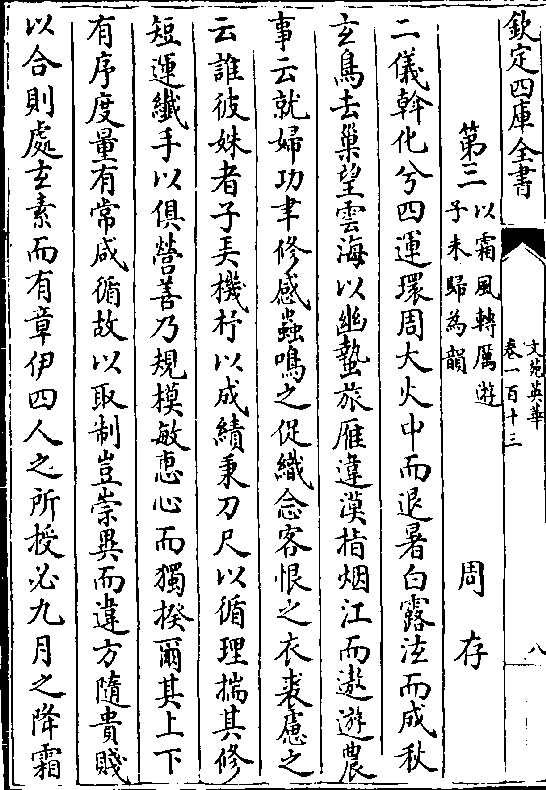 欽定四庫全書
文苑英華
卷一百十三
八
第三
以霜風轉厲遊
子未歸為韻
周存
二儀斡化兮四運環周大火中而退暑白露泫而成秋
玄鳥去巢望雲海以幽蟄旅雁違漠指烟江而遨遊農
事云就婦功聿修感蟲鳴之促織念客恨之衣裘慮之
云誰彼姝者子弄機杼以成績秉刀尺以循理揣其修
短運纖手以俱營善乃規模敏恵心而獨揆爾其上下
有序度量有常咸循故以取制豈崇異而違方隨貴賤
以合則處玄素而有章伊四人之所授必九月之降霜